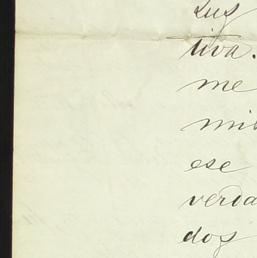 Luz
tiva.
me
mis
ese
verda
dos